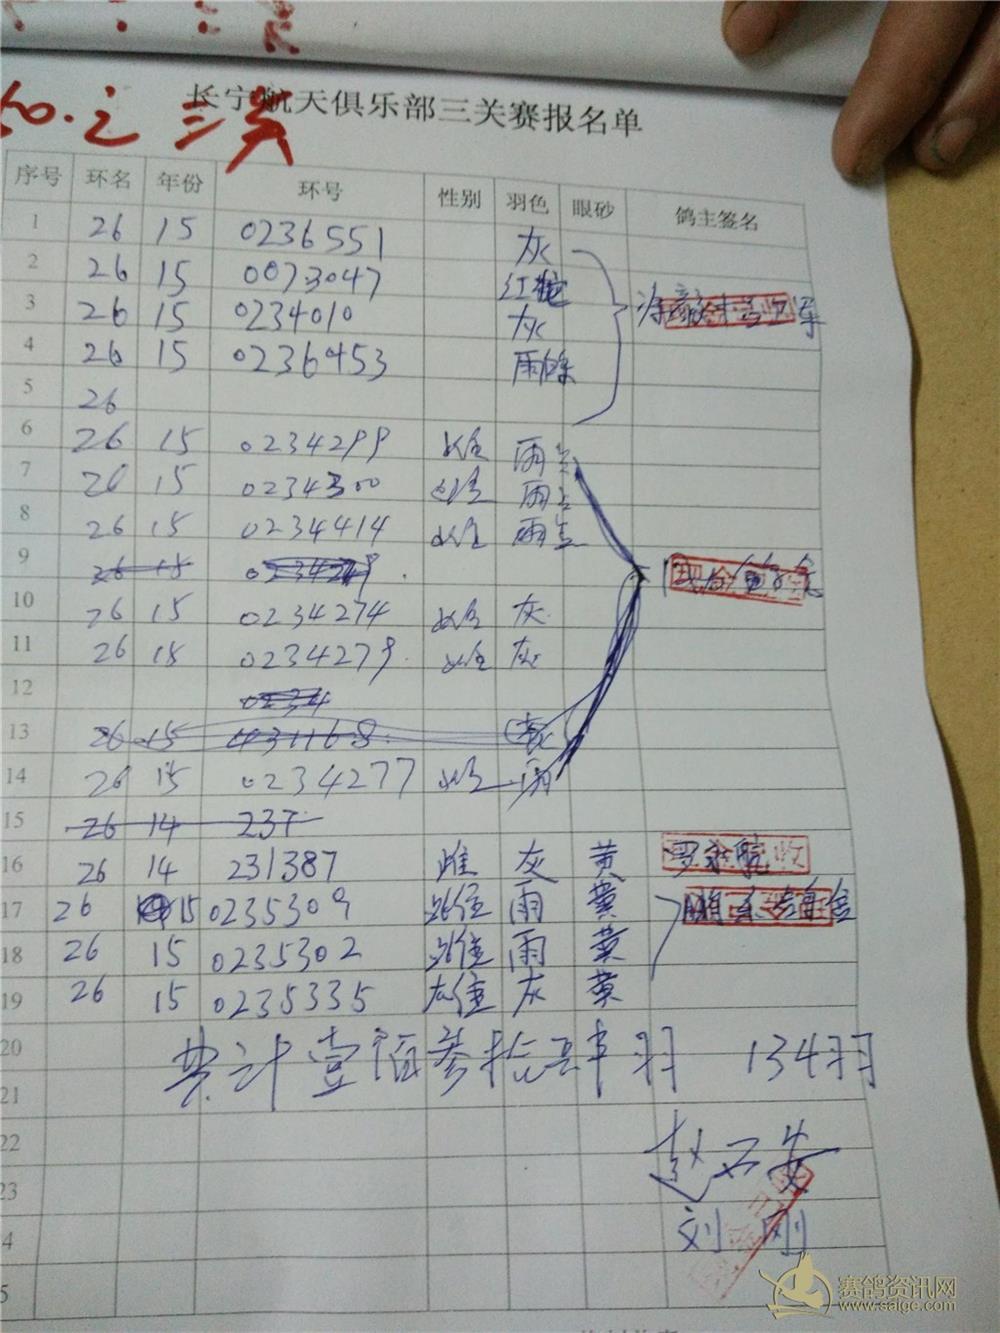 长宁航天俱乐部三关赛报名单
序号 环名 年份 环号 性别 羽色 眼砂 鸽主签名
1 26 15 0236551 灰
2 26 15 0073047 红轮
3 26 15 0234010 灰
4 26 15 0236453 雨
5 26
6 26 15 0234299 雄 雨点
7 26 15 0234300 雄 雨点
8 26 15 0234414 雄 雨点
9 26 15
10 26 15 0234274 雄 灰
11 26 15 0234279 雄 灰
12 0234
13 26 15 431168
14 26 15 0234277 雄
15 26 14 237
16 26 14 231387 雌 灰 黄
17 26 15 0235309 雌 雨 黄
18 26 15 0235302 雌 雨 黄
19 26 15 0235335 雄 灰 黄
20 共计壹佰参拾 羽 134羽
21
22
23
刘刚
赛鸽资讯网
www.saige.com